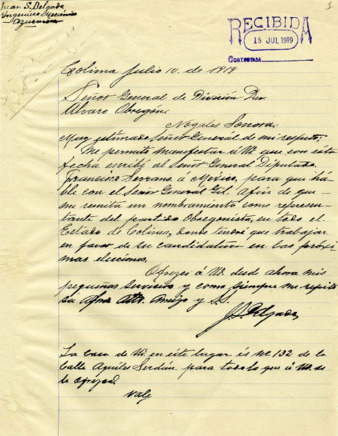 Juan S. Delgado
Ingeniero Mecánico
RECIBIDA
15 JUL 1919
Contestada
Colima Julio 10. de 1919
Señor General de División Don
Alvaro Obregón.
Nogales Sonora.
Muy estimado Señor General de mi respeto.
Me permito manifestar á Ud que con esta
fecha escribí al Señor General Diputado
Francisco Serrano á México, para que ha-
ble con el Señor General Gil. Afin de que
me remita un nombramiento como represen-
tante del partido Obregonista, en todo el
Estado de Colima, donde tendré que trabajar
en favor de su candidatura en las proxi-
mas elecciones.
Ofrezco á Ud. desde ahora mis
pequeños servicios y como siempre me repito
su Afmo Atto. Amigo y S.S.
J.S. Delgado
La casa de Ud. en este lugar és No 132 de la
Calle Aquiles Serdán para todo lo que á Ud. se
le ofrezca
Vale